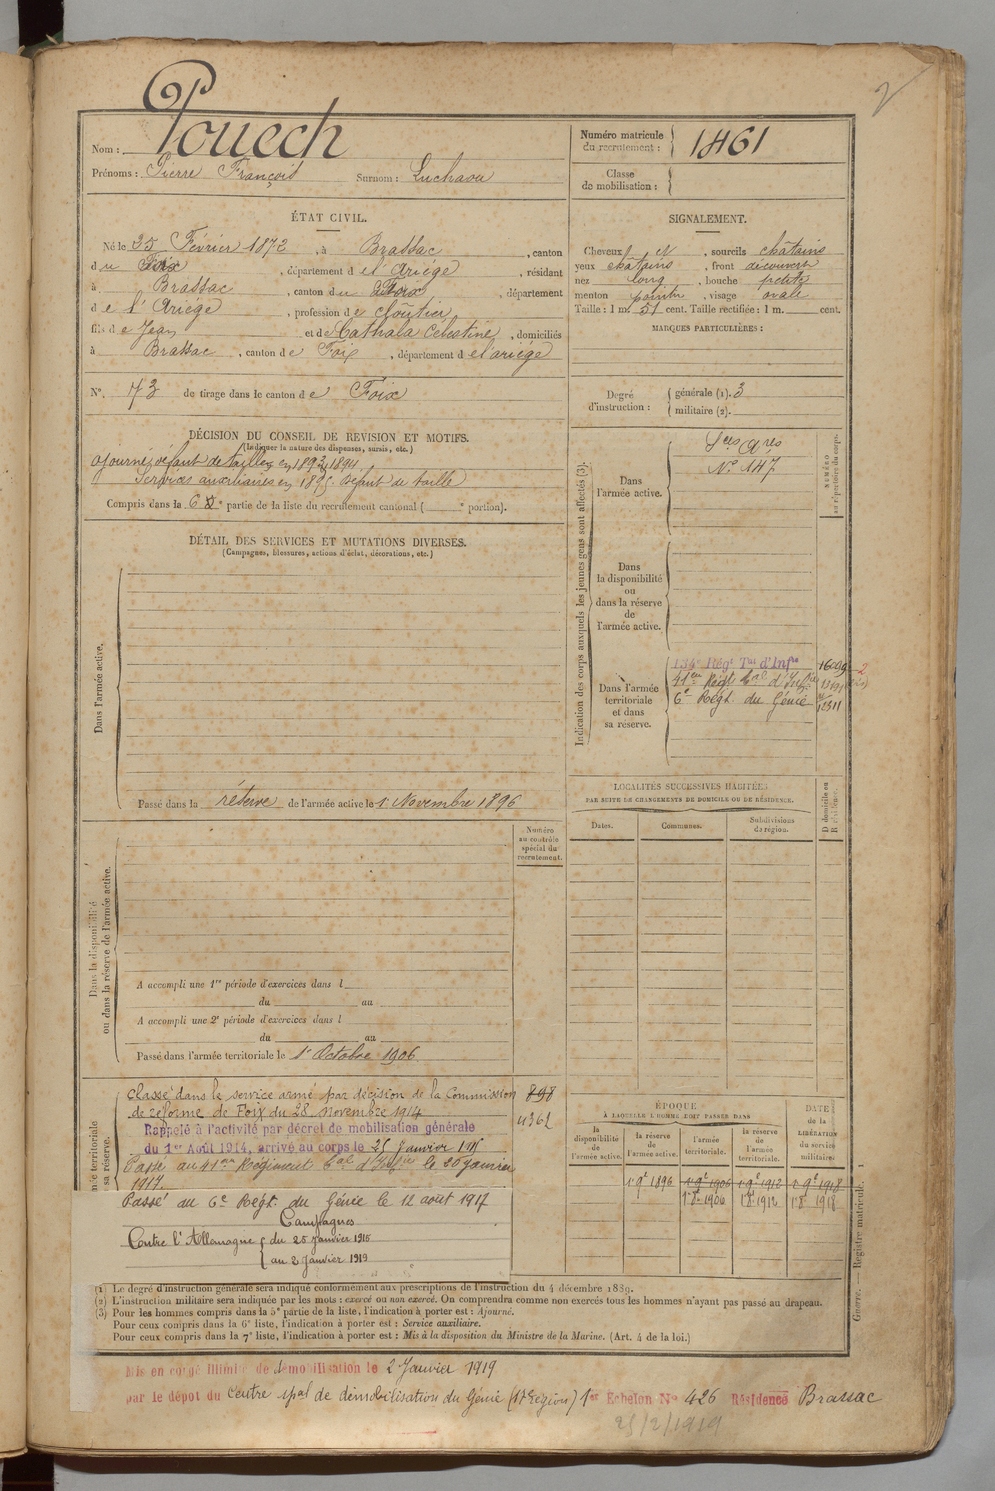 2
Nom : Pouech
Prénoms : Pierre François Surnom : Luchaou
Numéro matricule du recrutement : 1461
Classe de mobilisation :
ÉTAT CIVIL.
Né le 25 Février 1873, à Brassac, canton
du Foix, département de l'Ariège, résidant
à Brassac, canton du Foix, département
de l'Ariège, profession de cloutier
fils de Jean et de Cathala Célestine, domiciliés
à Brassac, canton de Foix, département de l'ariège
N°. 73 de tirage dans le canton de Foix
SIGNALEMENT.
Cheveux et, sourcils châtains
yeux châtains, front découvert
nez long, bouche petite
menton pointu, visage ovale
Taille : 1 m. 51 cent. Taille rectifiée : 1 m. cent.
MARQUES PARTICULIÈRES :
Degré d'instruction : générale (1). 3
militaire (2).
DÉCISION DU CONSEIL DE REVISION ET MOTIFS.
(Indiquer la nature des dispenses, sursis, etc.)
ajourné défaut de taille en 1893, 1894.
Services auxiliaires en 1895. Défaut de taille
Compris dans la 6e partie de la liste du recrutement cantonal ( e portion).
DÉTAIL DES SERVICES ET MUTATIONS DIVERSES.
(Campagnes, blessures, actions d'éclat, décorations, etc.)
Dans l'armée active.
Passé dans la réserve de l'armée active le 1r Novembre 1896
Indication des corps auxquels les jeunes gens sont affectés (3).
NUMÉRO au répertoire du corps.
Dans l'armée active.
Sces Ares
N° 147
Dans la disponibilité ou dans la réserve de l'armée active.
Dans l'armée territoriale et dans sa réserve.
134e Régt Tal d'Infie
41em Régt Cal d'Infie
6e Régt. du Génie
LOCALITÉS SUCCESSIVES HABITÉES
PAR SUITE DE CHANGEMENTS DE DOMICILE OU DE RÉSIDENCE.
Dates. Communes. Subdivisions de région. D domicile ou R résidence.
Numéro au contrôle spécial du recrutement.
Dans la disponibilité ou dans la réserve de l'armée active.
A accompli une 1re période d'exercices dans l
du au
A accompli une 2e période d'exercices dans l
du au
Passé dans l'armée territoriale le 1r Octobre 1906
Classé dans le service armé par décision de la Commission
de réforme de Foix du 28 novembre 1914
898
4362
Rappelé à l'activité par décret de mobilisation générale
du 1er Août 1914, arrivé au corps le 25 Janvier 1915
Passé au 41em Régiment Cal d'Infie le 20 Janvier
1917.
Passé au 6e Régt. du Génie le 12 août 1917
Campagnes
Contre l'Allemagne { du 25 Janvier 1915
au 2 Janvier 1919
ÉPOQUE
À LAQUELLE L'HOMME DOIT PASSER DANS
la disponibilité de l'armée active.
la réserve de l'armée active.
l'armée territoriale.
la réserve de l'armée territoriale.
DATE de la LIBÉRATION du service militaire.
1r 9e 1896 1r 9e 1906 1r 9e 1912 1r 9e 1918
1r 8e 1906 1r 8e 1912 1r 8e 1918
(1) Le degré d'instruction générale sera indiqué conformément aux prescriptions de l'instruction du 4 décembre 1889.
(2) L'instruction militaire sera indiquée par les mots : exercé ou non exercé. On comprendra comme non exercés tous les hommes n'ayant pas passé au drapeau.
(3) Pour les hommes compris dans la 5e partie de la liste, l'indication à porter est : Ajourné.
Pour ceux compris dans la 6e liste, l'indication à porter est : Service auxiliaire.
Pour ceux compris dans la 7e liste, l'indication à porter est : Mis à la disposition du Ministre de la Marine. (Art. 4 de la loi.)
Guerre. — Registre matricule.
Mis en congé illimité de démobilisation le 2 Janvier 1919
par le dépôt du Centre spal de démobilisation du Génie (17e Région) 1er Echelon N° 426 Résidence Brassac
25/2/1919